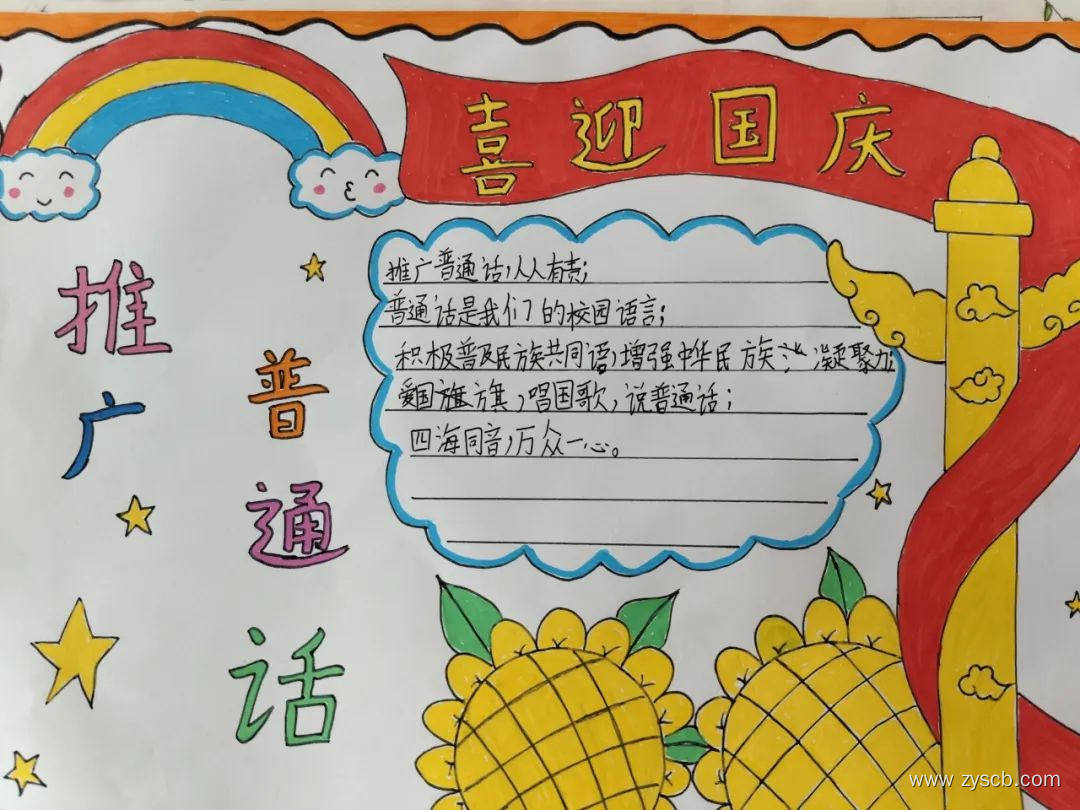 喜迎国庆
推广
普通话
推广普通话,人人有责;
普通话是我们的校园语言;
积极普及民族共同语,增强中华民族凝聚力;
爱国旗,唱国歌,说普通话;
四海同音,万众一心。
www.zyscb.com